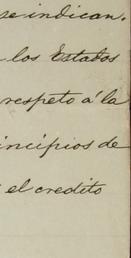 se indican.
los Estados
respeto á la
incipios de
el credito